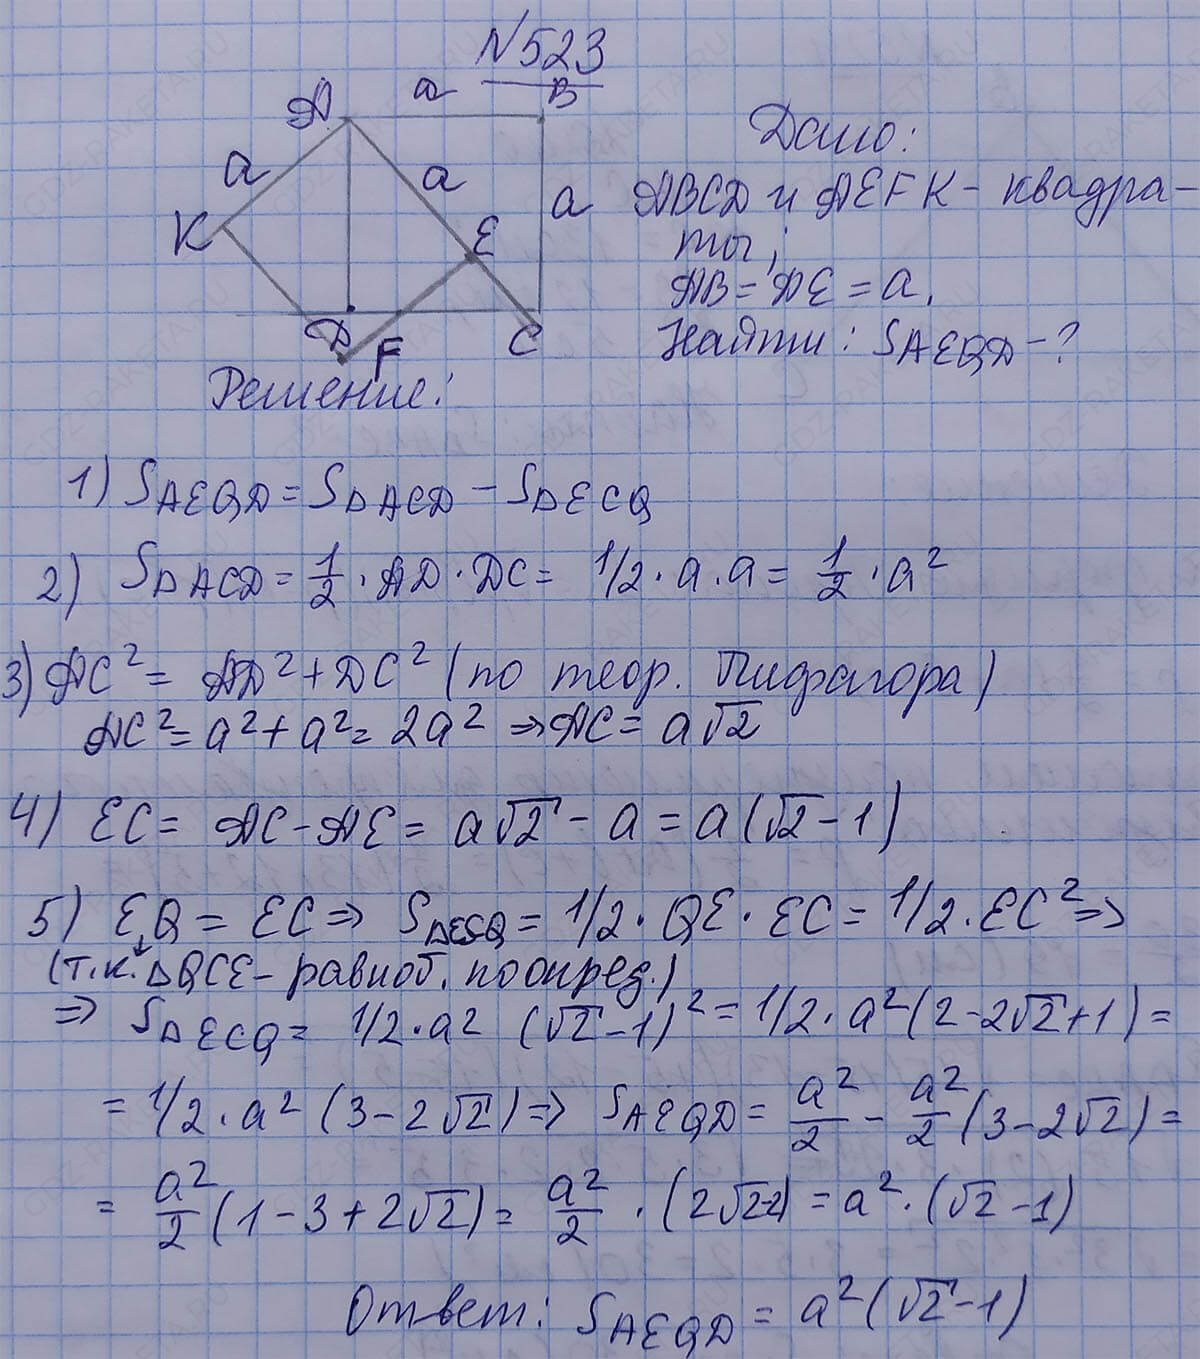 №523
A a B
a a a
K E
D F C
Дано:
ABCD и AEFK - квадра-
ты;
AB = AE = a.
Найти: S AEQD - ?
Решение:
1) S AEQD = S △ACD - S △ECQ
2) S △ACD = 1/2 · AD · DC = 1/2 · a · a = 1/2 · a²
3) AC² = AD² + DC² (по теор. Пифагора)
AC² = a² + a² = 2a² ⇒ AC = a√2
4) EC = AC - AE = a√2 - a = a(√2 - 1)
5) EQ = EC ⇒ S △ECQ = 1/2 · QE · EC = 1/2 · EC² ⇒
(т.к. △QCE - равноб. по опред.)
⇒ S △ECQ = 1/2 · a² (√2 - 1)² = 1/2 · a² (2 - 2√2 + 1) =
= 1/2 · a² (3 - 2√2) ⇒ S AEQD = a²/2 - a²/2 (3 - 2√2) =
= a²/2 (1 - 3 + 2√2) = a²/2 · (2√2-2) = a² · (√2 - 1)
Ответ: S AEQD = a² (√2 - 1)